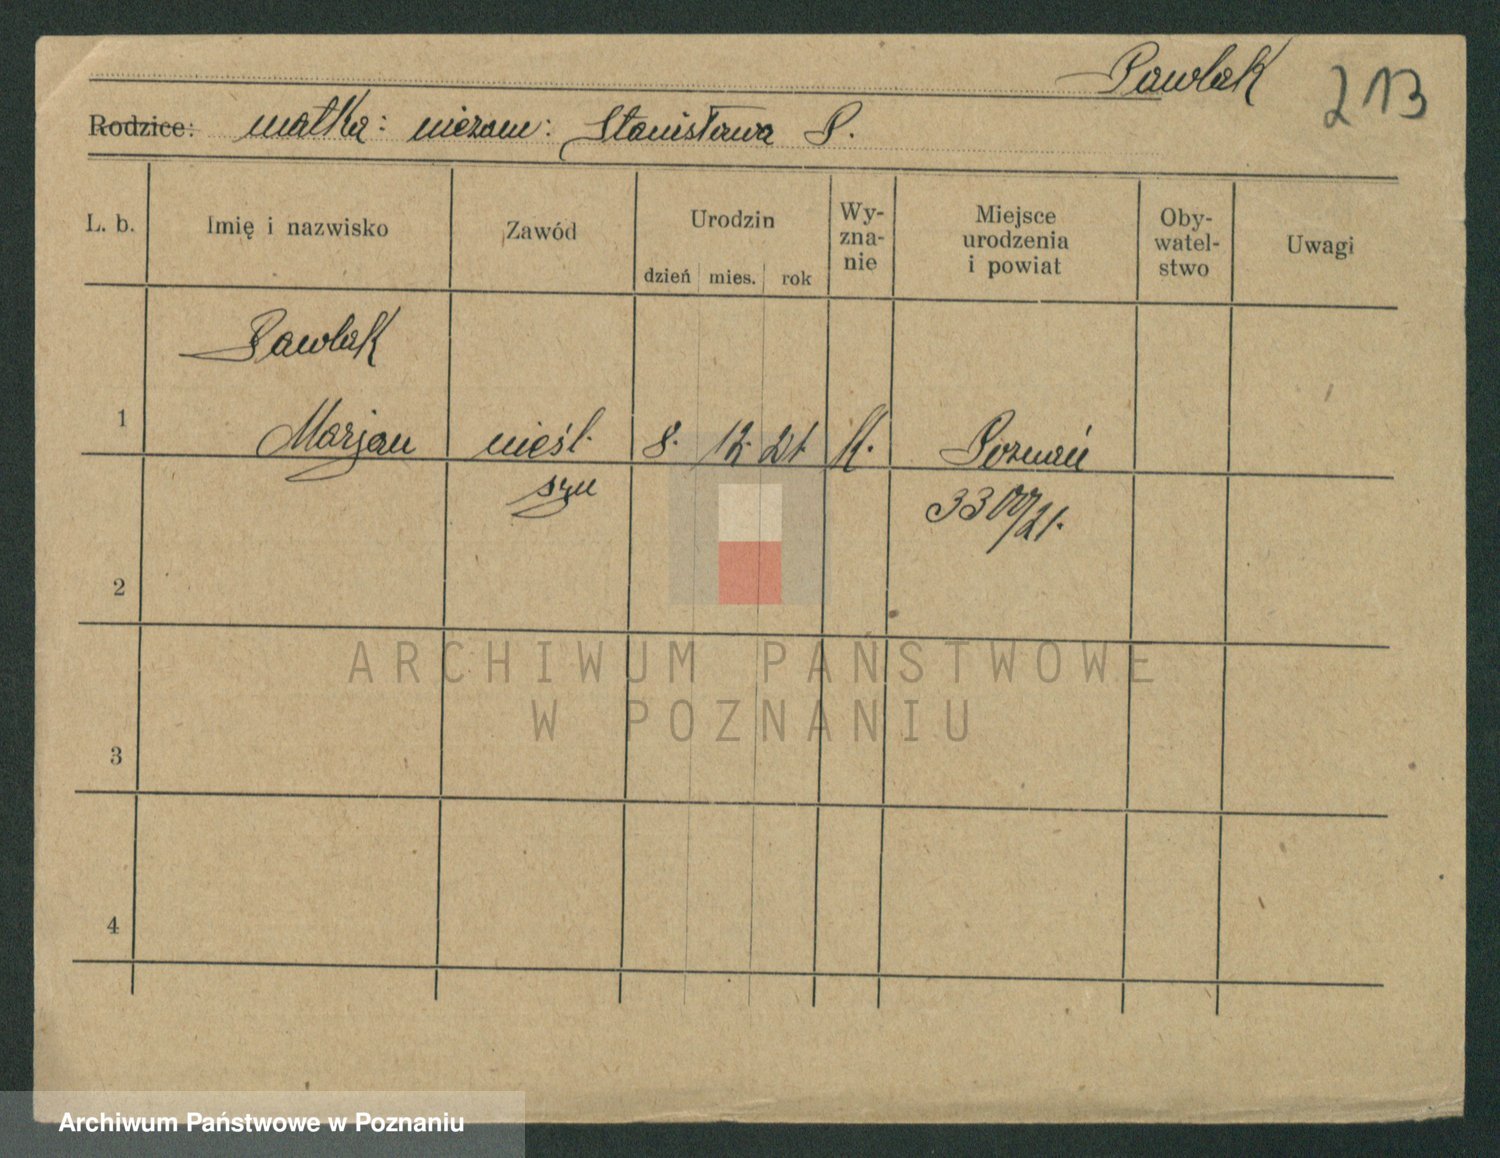 Pawlak 213
Rodzice: matka: niezam: Stanisława P.
L. b. Imię i nazwisko Zawód Urodzin Wy-zna-nie Miejsce urodzenia i powiat Oby-watel-stwo Uwagi
dzień mies. rok
Pawlak
1 Marjan nieśl. 8. 12. 21. k. Poznań
syn 3300/21.
2
ARCHIWUM PAŃSTWOWE
W POZNANIU
3
4
Archiwum Państwowe w Poznaniu